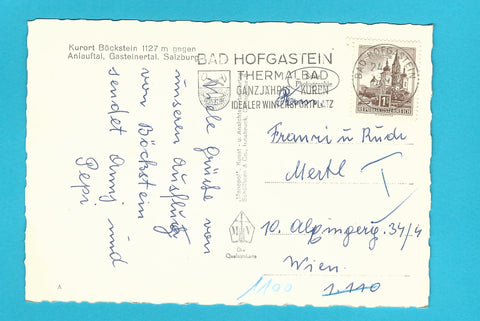 Kurort Böckstein 1127 m gegen
Anlauftal, Gasteinertal. Salzburg
BAD HOFGASTEIN
THERMALBAD
GANZJÄHRIG KUREN
IDEALER WINTERSPORTPLATZ
BAD HOFGASTEIN
REPUBLIK ÖSTERREICH
Viele Grüße von
unserem Ausflug
von Böckstein
sendet Anni und
Pepi
Franzi u Rudi
Mertl
10. Alpingerg. 34/4
Wien
1100
1.110
Die
A